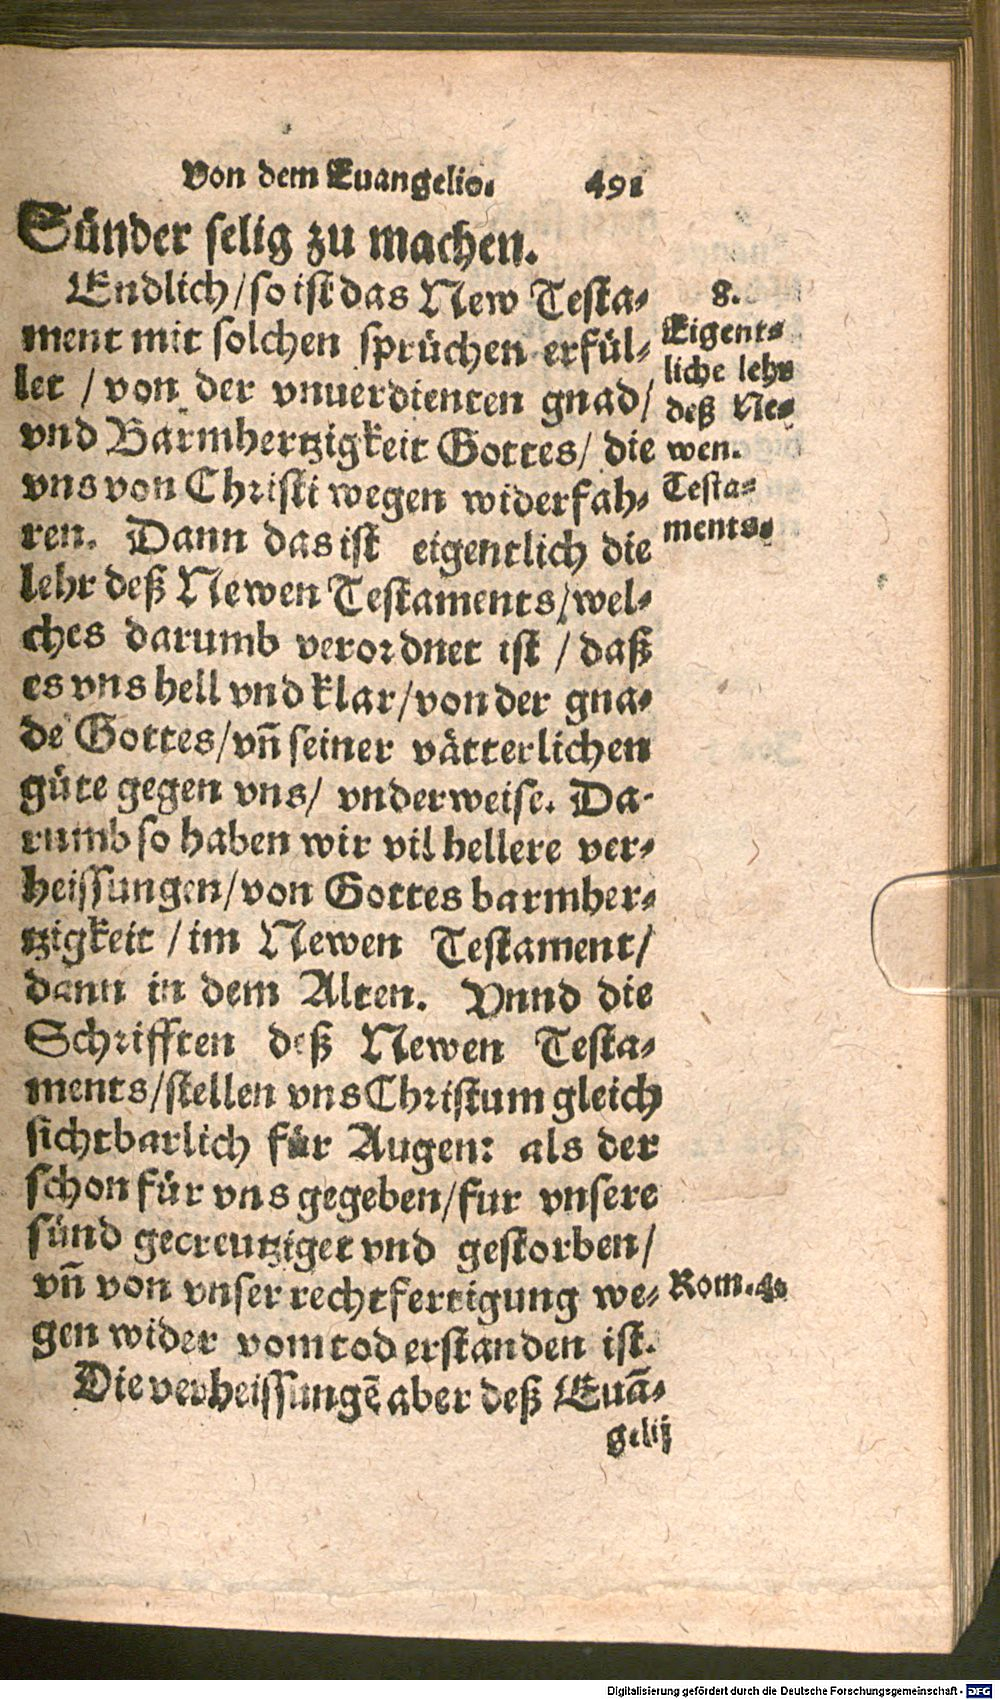 Von dem Euangelio. 491
Sünder selig zu machen.
Endlich/so ist das New Testa-
ment mit solchen sprüchen erfül-
let / von der vnuerdienten gnad/
vnd Barmhertzigkeit Gottes/ die
vns von Christi wegen widerfah-
ren. Dann das ist eigentlich die
lehr deß Newen Testaments/wel-
ches darumb verordnet ist / daß
es vns hell vnd klar/von der gna-
de Gottes/vn̄ seiner vätterlichen
güte gegen vns/ vnderweise. Da-
rumb so haben wir vil hellere ver-
heissungen/von Gottes barmher-
tzigkeit / im Newen Testament/
dann in dem Alten. Vnnd die
Schrifften deß Newen Testa-
ments/stellen vns Christum gleich
sichtbarlich für Augen: als der
schon für vns gegeben/fur vnsere
sünd gecreutziget vnd gestorben/
vn̄ von vnser rechtfertigung we-
gen wider vom tod erstanden ist.
Die verheissungē aber deß Euā-
gelij
8.
Eigent-
liche lehr
deß Ne-
wen.
Testa-
ments.
Rom.4.
Digitalisierung gefördert durch die Deutsche Forschungsgemeinschaft - DFG